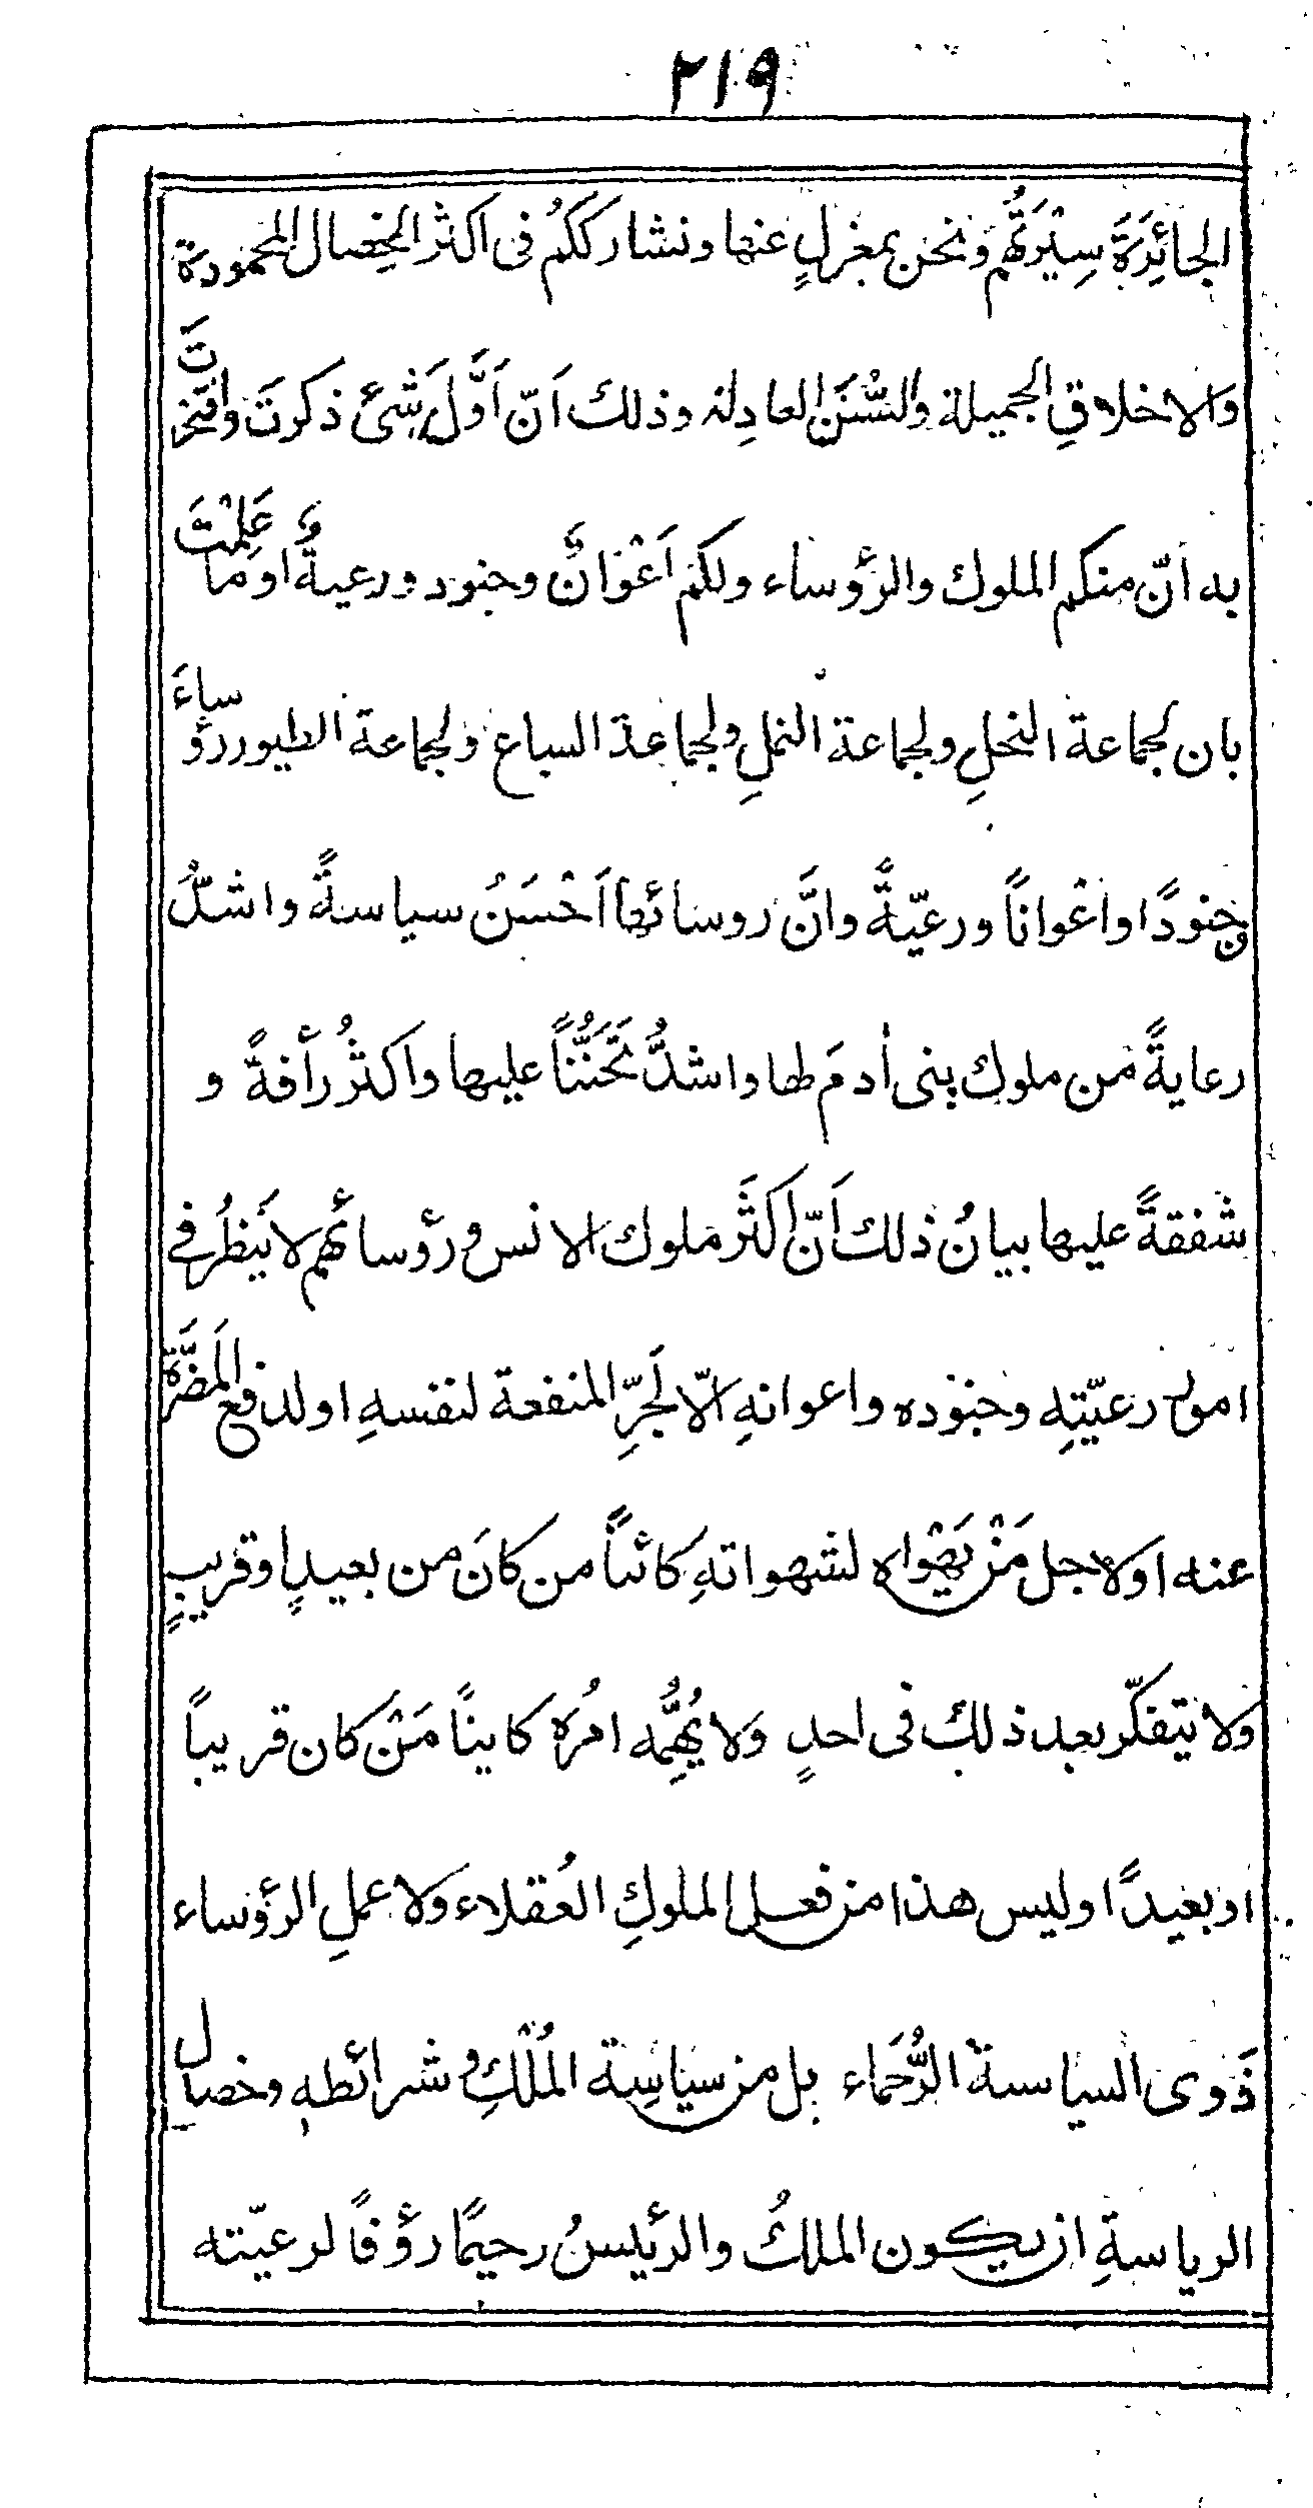 ٢١٩
الجائِرَةَ سِيْرَتُهُم وَنحن بمغزلٍ عنها ونشارككُم فى اكثر الخِصال المحمودة
والاخلاقِ الجميلة والسُّنَنِ العادِلة وذلك اَنّ اَوَّلَ شئ ذكرتَ وافتخرتَ
به اَنّ منكم الملوك والرؤساء ولكم اَعْوَانٌ وجنود ورعيةٌ اَوَ ما عَلِمْتَ
بان لجماعة النحلِ ولجماعة النملِ ولجماعة السباع ولجماعة الطيور رؤساءَ
وجنودًا واعْواناً ورعيّةً وانَّ روسائها اَحْسَنُ سياسةً واشدُّ
رعايةً من ملوك بنى اٰدمَ لها واشدُّ تَحَنُّناً عليها واكثرُ رأفةً و
شفقةً عليها بيانُ ذلك اَنّ اكثَر ملوك الانس ورؤسائهم لا يَنظُر فى
امور رعيّتِه وجنوده واعوانهِ الّا لَجرِّ المنفعة لنفسهِ او لدفع المَضَّرَة
عنه او لاجل مَنْ يَهْواه لشهواتهِ كائناً من كانَ من بعيدٍ او قريبٍ
ولا يتفكّر بعد ذلك فى احدٍ ولا يُهِمُّه امُره كايناً مَنْ كان قريباً
او بعيدًا وليس هذا من فعل الملوكِ العُقلاء ولا عملِ الرؤساء
ذَوى السياسة الرُّحَماء بل من سياسِة المُلْكِ وشرائطهِ وخصال
الرياسةِ ان يكون الملكُ والرئيسُ رحيمًا رؤفاً لرعيّته